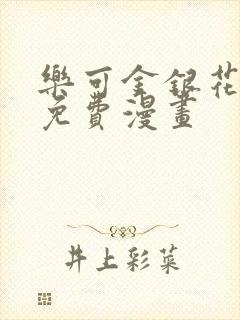 樂可金銀花
免費漫畫
井上彩菜